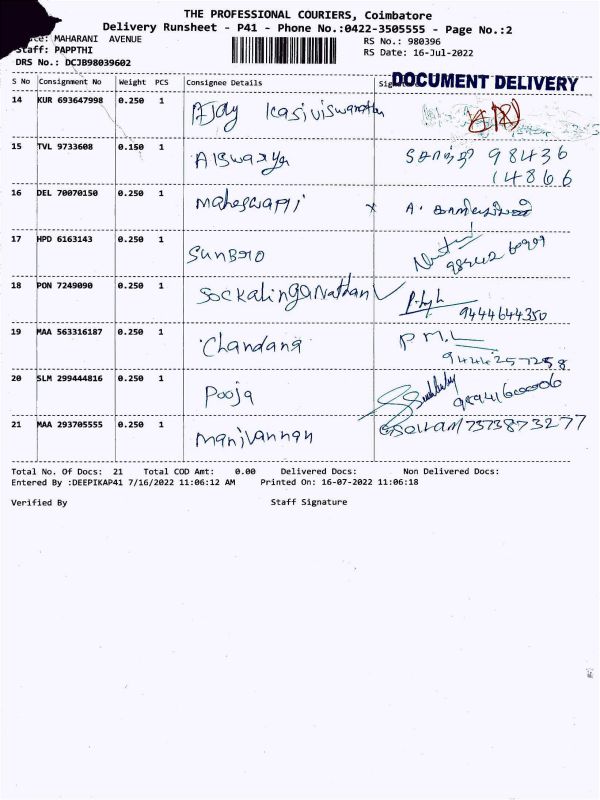 THE PROFESSIONAL COURIERS, Coimbatore
Delivery Runsheet - P41 - Phone No.:0422-3505555 - Page No.:2
MAHARANI AVENUE RS No.: 980396
Staff: PAPPTHI RS Date: 16-Jul-2022
DRS No.: DCJB98039602
S No Consignment No Weight PCS Consignee Details DOCUMENT DELIVERY
14 KUR 693647998 0.250 1 AJay kasiviswanathan
15 TVL 9733608 0.150 1 AISwarya சாந்தி 98436
14866
16 DEL 70070150 0.250 1 maheswarri x A.
17 HPD 6163143 0.250 1 SUNBGIO
18 PON 7249090 0.250 1 SockalingaNathan ✓ 9444644350
19 MAA 563316187 0.250 1 Chandana P M.L
9444257258
20 SLM 299444816 0.250 1 Pooja
21 MAA 293705555 0.250 1 Manivannan 7373873277
Total No. Of Docs: 21 Total COD Amt: 0.00 Delivered Docs: Non Delivered Docs:
Entered By :DEEPIKAP41 7/16/2022 11:06:12 AM Printed On: 16-07-2022 11:06:18
Verified By Staff Signature